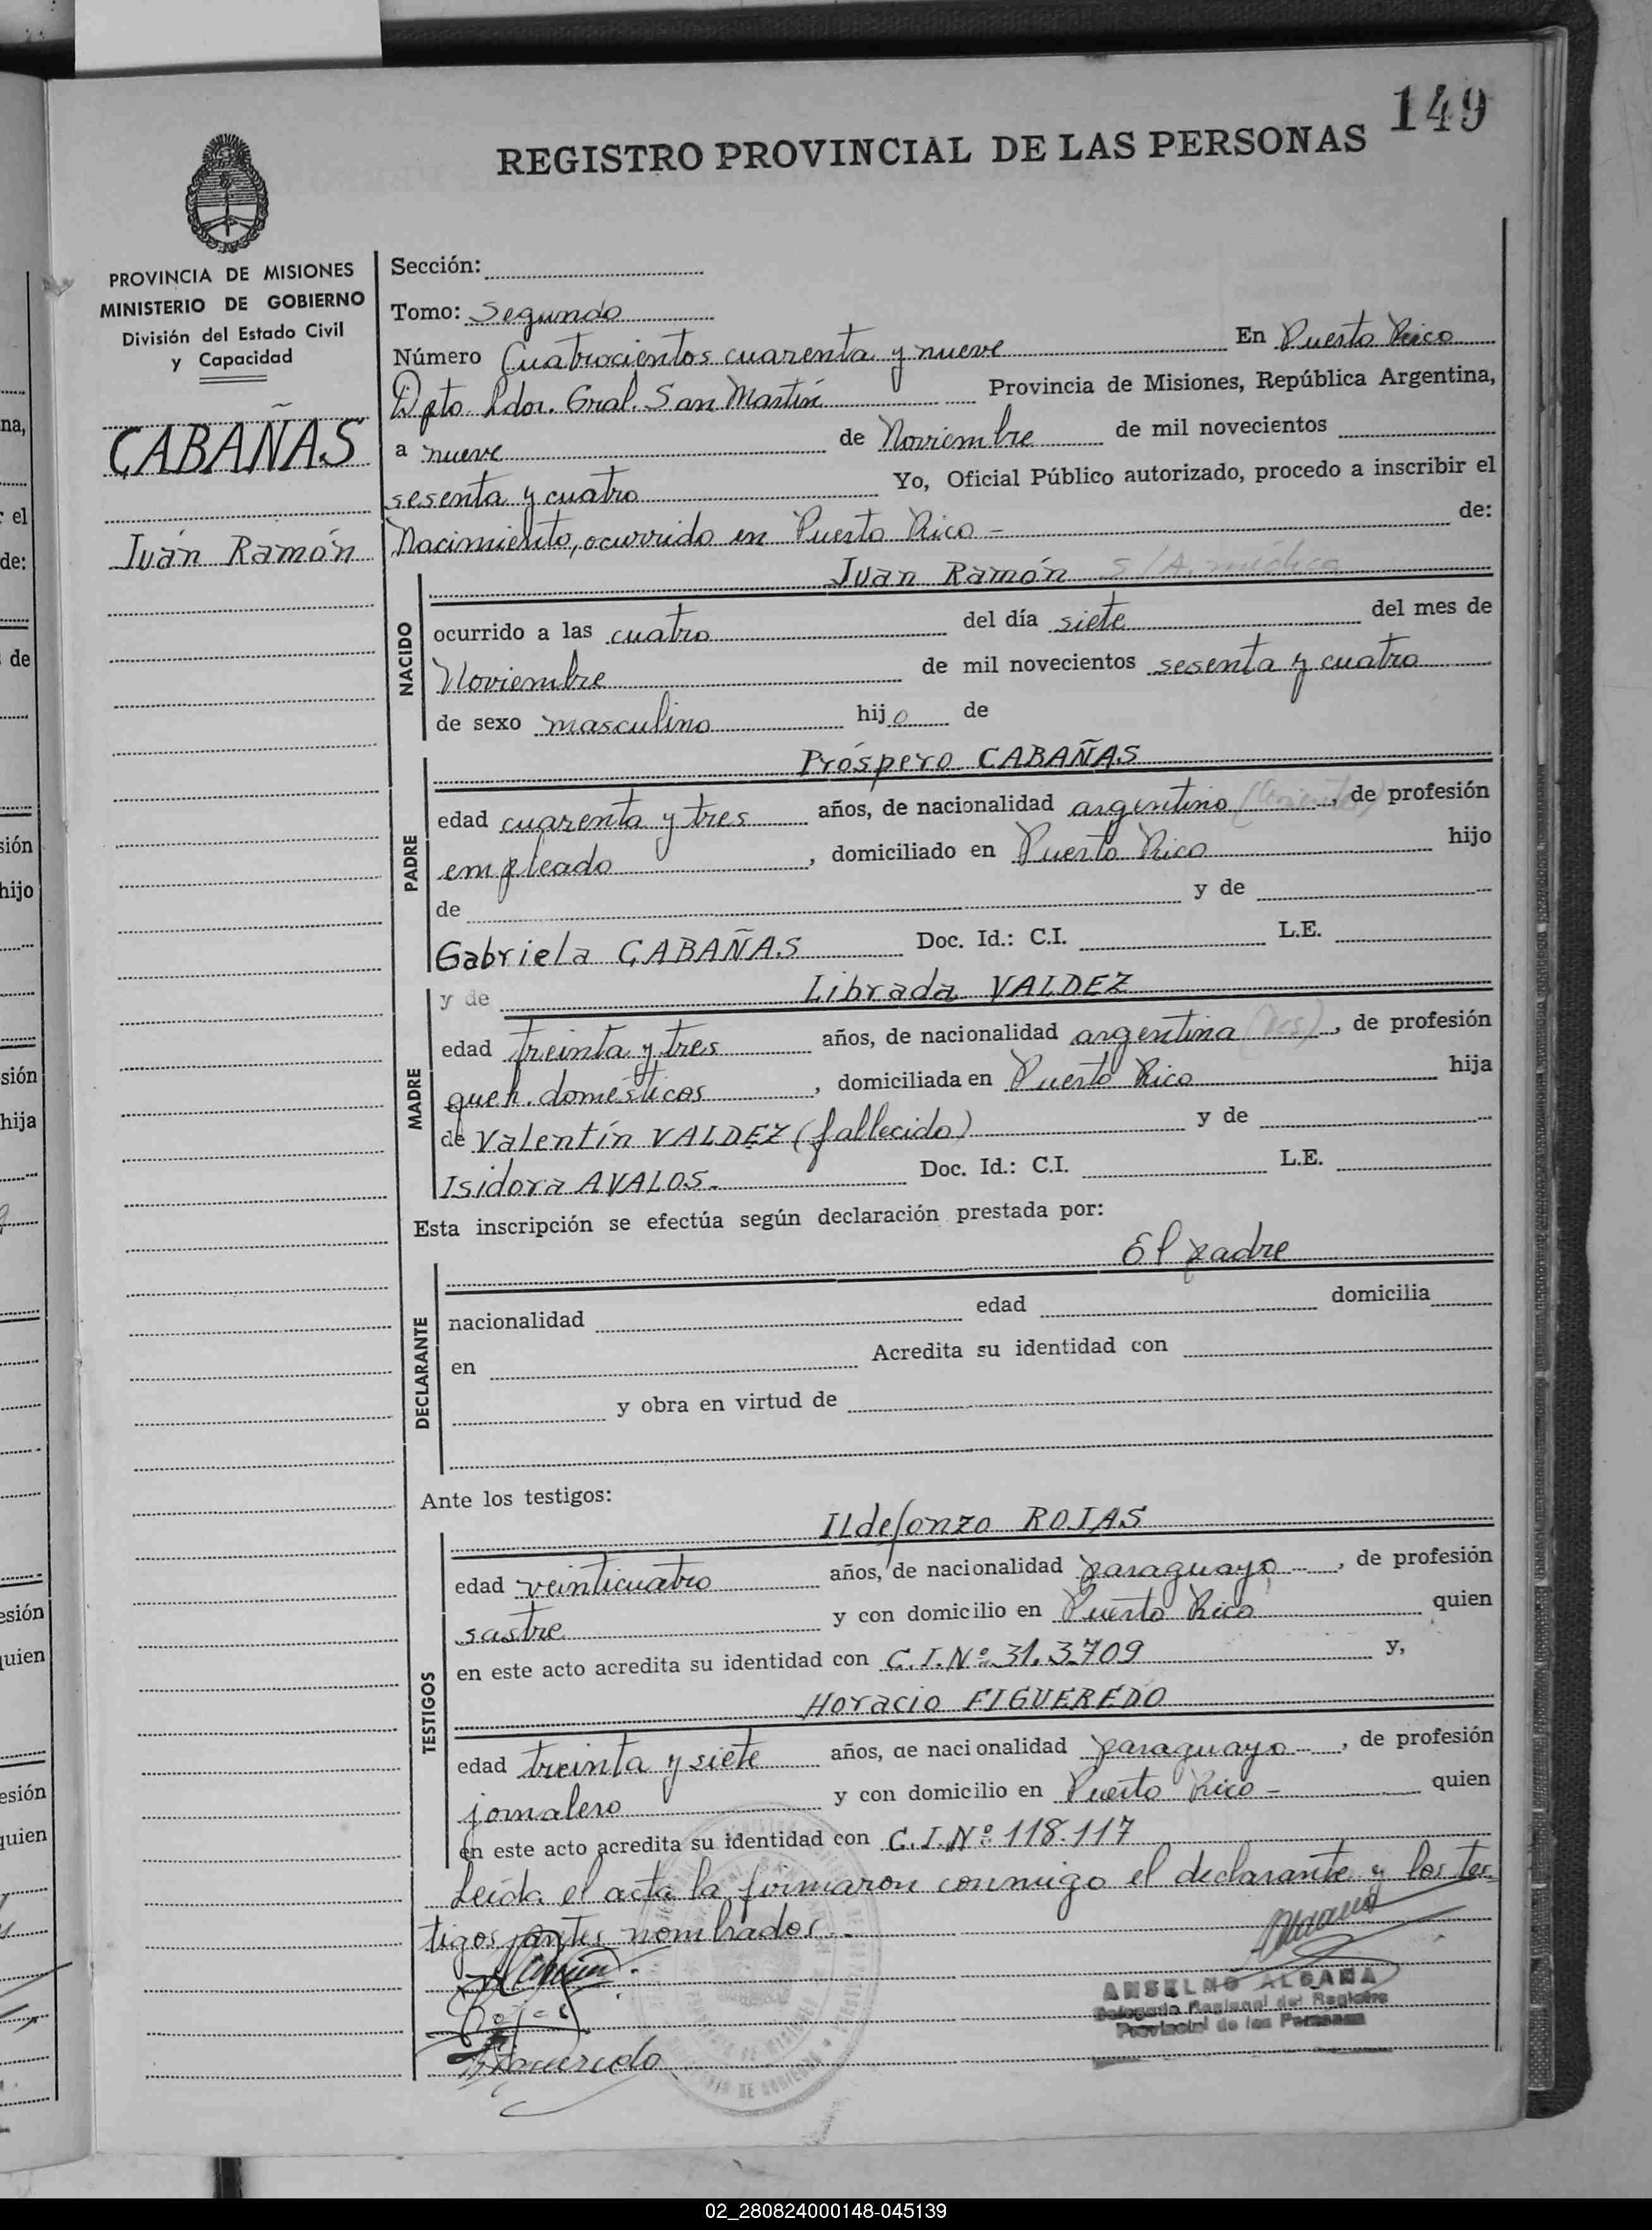 149
REGISTRO PROVINCIAL DE LAS PERSONAS
PROVINCIA DE MISIONES
MINISTERIO DE GOBIERNO
División del Estado Civil
y Capacidad
CABAÑAS
Juan Ramón
Sección:
Tomo: Segundo
Número Cuatrocientos cuarenta y nueve En Puerto Rico
Dpto Ldor. Gral. San Martín Provincia de Misiones, República Argentina,
a nueve de Noviembre de mil novecientos
sesenta y cuatro Yo, Oficial Público autorizado, procedo a inscribir el
Nacimiento, ocurrido en Puerto Rico = de:
NACIDO
Juan Ramón S/A. médica
ocurrido a las cuatro del día siete del mes de
Noviembre de mil novecientos sesenta y cuatro
de sexo masculino hijo de
PADRE
Próspero CABAÑAS
edad cuarenta y tres años, de nacionalidad argentino, de profesión
empleado, domiciliado en Puerto Rico hijo
de y de
Gabriela CABAÑAS Doc. Id.: C.I. L.E.
MADRE
y de Librada VALDEZ
edad treinta y tres años, de nacionalidad argentina, de profesión
queh. domésticos, domiciliada en Puerto Rico hija
de Valentín VALDEZ (fallecido) y de
Isidora AVALOS.- Doc. Id.: C.I. L.E.
Esta inscripción se efectúa según declaración prestada por:
El padre
DECLARANTE
nacionalidad edad domicilia
en Acredita su identidad con
y obra en virtud de
Ante los testigos:
TESTIGOS
Ildefonzo ROJAS
edad veinticuatro años, de nacionalidad paraguayo, de profesión
sastre y con domicilio en Puerto Rico quien
en este acto acredita su identidad con C.I.Nº 31.3709 y,
Horacio FIGUEREDO
edad treinta y siete años, de nacionalidad paraguayo, de profesión
jornalero y con domicilio en Puerto Rico = quien
en este acto acredita su identidad con C.I.Nº 118.117
Leída el acta la firmaron conmigo el declarante y los tes-
tigos antes nombrados.-
Rojas
Figueredo
ANSELMO ALDANA
Delegado Regional del Registro
Provincial de las Personas
02_280824000148-045139